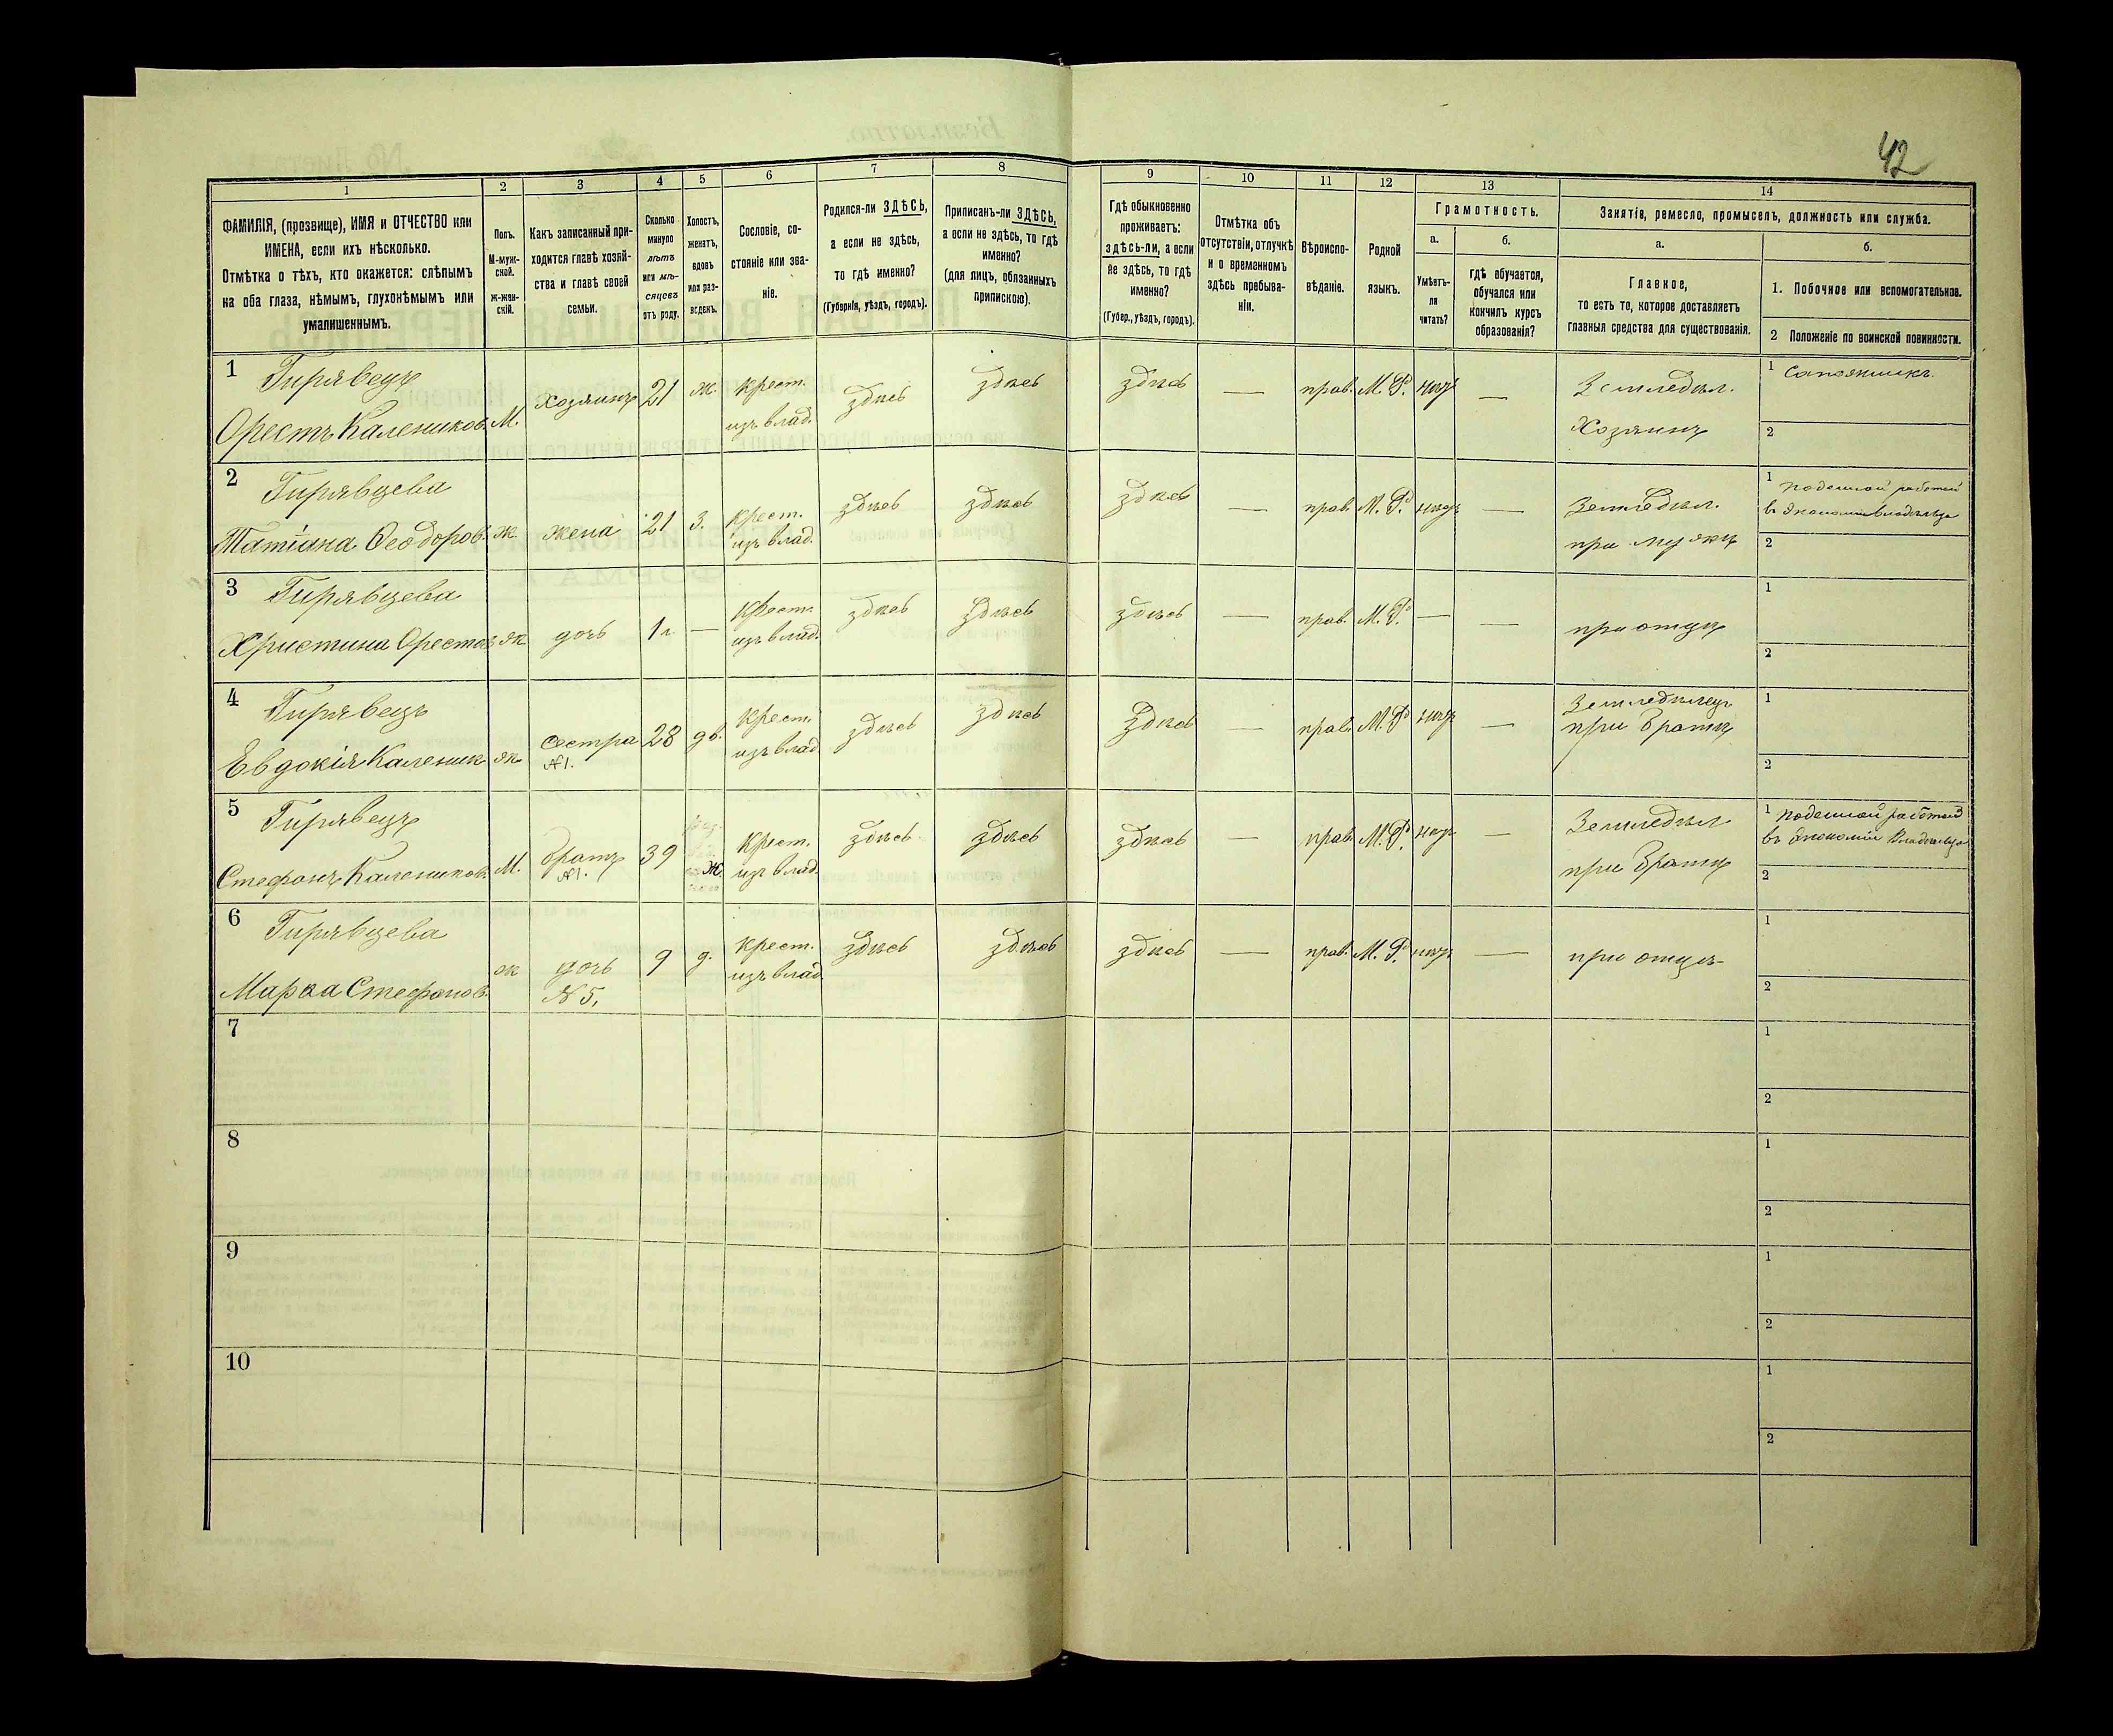 42
1 2 3 4 5 6 7 8 9 10 11 12 13 14
ФАМИЛІЯ, (прозвище), ИМЯ и ОТЧЕСТВО или
ИМЕНА, если ихъ нѣсколько.
Отмѣтка о тѣхъ, кто окажется: слѣпымъ
на оба глаза, нѣмымъ, глухонѣмымъ или
умалишеннымъ.
Полъ.
М-муж-
ской.
ж-жен-
скій.
Какъ записанный при-
ходится главѣ хозяй-
ства и главѣ своей
семьи.
Сколько
минуло
лѣтъ
или мѣ-
сяцевъ
отъ роду.
Холостъ,
женатъ,
вдовъ
или раз-
веденъ.
Сословіе, со-
стояніе или зва-
ніе.
Родился-ли ЗДѢСЬ,
а если не здѣсь,
то гдѣ именно?
(Губернія, уѣздъ, городъ).
Приписанъ-ли ЗДѢСЬ,
а если не здѣсь, то гдѣ
именно?
(для лицъ, обязанныхъ
припискою).
Гдѣ обыкновенно
проживаетъ:
здѣсь-ли, а если
не здѣсь, то гдѣ
именно?
(Губер., уѣздъ, городъ).
Отмѣтка объ
отсутствіи, отлучкѣ
и о временномъ
здѣсь пребыва-
ніи.
Вѣроиспо-
вѣданіе.
Родной
языкъ.
Грамотность.
а.
Умѣетъ-
ли
читать?
б.
гдѣ обучается,
обучался или
кончилъ курсъ
образованія?
Занятія, ремесло, промыселъ, должность или служба.
а.
Главное,
то есть то, которое доставляетъ
главныя средства для существованія.
б.
1. Побочное или вспомогательное.
2 Положеніе по воинской повинности.
1 Гирявецъ
Орестъ Калеников. М. хозяинъ 21 ж. крест. здѣсь здѣсь здѣсь — прав. М. Р. нѣтъ — Земледѣл. 1 Сапожникъ.
изъ влад. Хозяинъ 2
2 Гирявцева
Татіана Ѳеодоров. ж. жена 21 з. крест. здѣсь здѣсь здѣсь — прав. М. Р. нѣтъ — Земледѣл. 1 Поденной работой
изъ влад. при мужѣ въ экономіи владѣльца
2
3 Гирявцева
Христина Орестов. ж дочь 1 г. — Крест. здѣсь здѣсь здѣсь — прав. М. Р. — — при отцѣ 1
изъ влад. 2
4 Гирявецъ
Евдокія Каленик. ж сестра 28 дѣв. Крест. здѣсь здѣсь здѣсь — прав. М. Р. нѣтъ — Земледѣлецъ 1
№1. изъ влад при братѣ 2
5 Гирявецъ
Стефанъ Калеников. М. братъ 39 Ж. Крест. здѣсь здѣсь здѣсь — прав. М. Р. нѣтъ — Земледѣл 1 Поденной работой
№1. изъ влад. при братѣ въ экономіи Владѣльца
2
6 Гирявцева
Стефанов. ж дочь 9 д. Крест. здѣсь здѣсь здѣсь — прав. М. Р. нѣтъ — при отцѣ 1
№5. изъ влад. 2
7 1
2
8 1
2
9 1
2
10 1
2